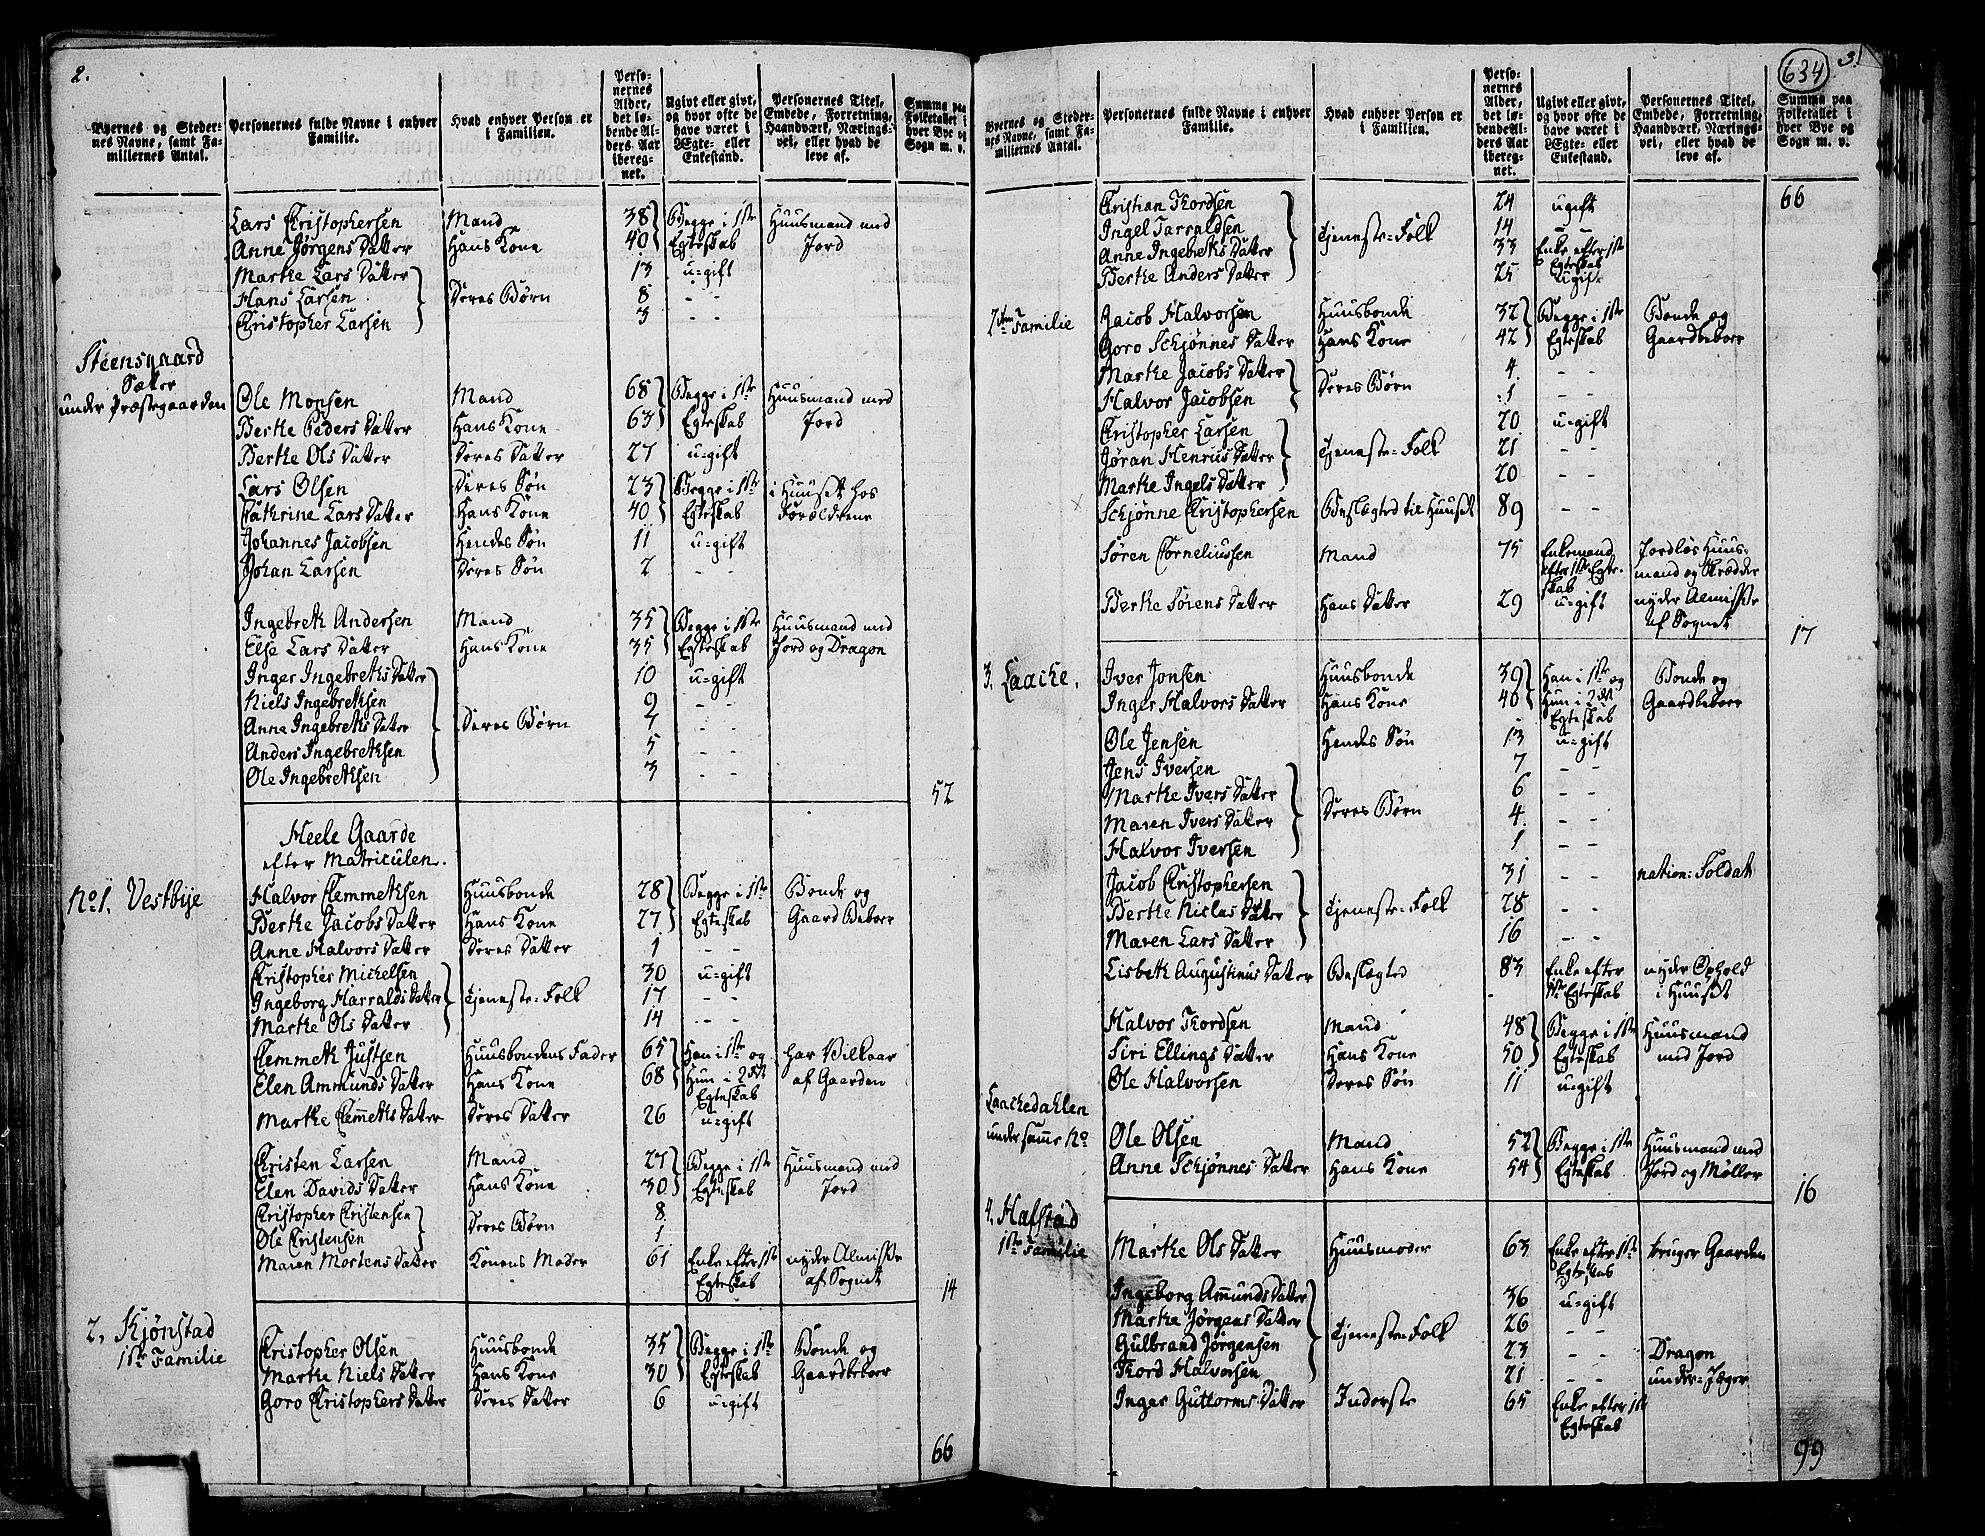 2.
Byernes og Steder-
nes Navne, samt Fa-
miliernes Antal.
Personernes fulde Navne i enhver
Familie.
Hvad enhver Person er
i Familien.
Perso-
nernes
Alder,
det lø-
bende Al-
ders Aar
ibereg-
net.
Ugivt eller givt,
og hvor ofte de
have været i
Ægte- eller
Enkestand.
Personernes Titel,
Embede, Forretning,
Haandværk, Nærings-
vei, eller hvad de
leve af.
Summa paa
Folketallet i
hver Bye og
Sogn m. v.
Lars Christophersen Mand 38 Begge i 1ste Huusmand med
Anne Jørgens Datter Hans Kone 40 Egteskab Jord
Marthe Lars Datter 13 u-gift
Hans Larsen Deres Børn 8 - -
Christopher Larsen 3 - -
Steensgaard
Sæter
under Præstegaarden
Ole Monsen Mand 68 Begge i 1ste Huusmand med
Berthe Peders Datter Hans Kone 63 Egteskab Jord
Berthe Ols Datter Deres Datter 27 u-gift
Lars Olsen Deres Søn 23 Begge i 1ste i Huuset hos
Cathrine Lars Datter Hans Kone 40 Egteskab Forældrene
Johannes Jacobsen Hendes Søn 11 u-gift
Johan Larsen Deres Søn 2 - -
Ingebreth Andersen Mand 35 Begge i 1ste Huusmand med
Else Lars Datter Hans Kone 35 Egteskab Jord og Dragon
Inger Ingebreths Datter 10 u-gift
Niels Ingebrethsen 9 - -
Anne Ingebreths Datter Deres Børn 7
Anders Ingebrethsen 5 - -
Ole Ingebrethsen 3 - -
52
Heele Gaarde
efter Matriculen.
No 1. Vestbye
Halvor Clemmethsen Huusbonde 28 Begge i 1ste Bonde og
Berthe Jacobs Datter Hans Kone 27 Egteskab Gaard Beboer
Anne Halvors Datter Deres Datter 1 - -
Christopher Michelsen 30 u-gift
Ingeborg Harralds Datter Tjeneste-Folk 17 - -
Marthe Ols Datter 14 - -
Clemmeth Justsen Huusbondens Fader 65 Han i 1ste og har Vilkaar
Elen Ammunds Datter Hans Kone 68 Hun i 2det af Gaarden
Egteskab
Marthe Clemeths Datter Deres Datter 26 u-gift
Christen Larsen Mand 27 Begge i 1ste Huusmand med
Elen Davids Datter Hans Kone 30 Egteskab Jord
Christopher Christensen 8
Ole Christensen Deres Børn 1
Maren Mortens Datter Konens Moder 61 Enke efter 1ste nyder Almisse
Egteskab af Sognet
14
2. Skjønstad
1ste Familie
Christopher Olsen Huusbonde 35 Begge i 1ste Bonde og
Marthe Niels Datter Hans Kone 30 Egteskab Gaardbeboer
Goro Christophers Datter Deres Datter 6 u-gift
66
634
3.
Byernes og Steder-
nes Navne, samt Fa-
miliernes Antal.
Personernes fulde Navne i enhver
Familie.
Hvad enhver Person er
i Familien.
Perso-
nernes
Alder,
det lø-
bende Al-
ders Aar
ibereg-
net.
Ugivt eller givt,
og hvor ofte de
have været i
Ægte- eller
Enkestand.
Personernes Titel,
Embede, Forretning,
Haandværk, Nærings-
vei, eller hvad de
leve af.
Summa paa
Folketallet i
hver Bye og
Sogn m. v.
66
Christian Thordsen 24 ugift
Ingel Harraldsen Tjeneste-Folk 14 - -
Anne Ingebreths Datter 33 Enke efter 1ste
Egteskab
Berthe Anders Datter 25 Ugift
2den Familie
Jacob Halvorsen Huusbonde 32 Begge i 1ste Bonde og
Goro Schjønnes Datter Hans Kone 42 Egteskab Gaardbeboer
Marthe Jacobs Datter Deres Børn 4 - -
Halvor Jacobsen 1 - -
Christopher Larsen 20 u-gift
Jøran Henrics Datter Tjeneste-Folk 21 - -
Marthe Ingels Datter 20 - -
Schjønne Christophersen Beslægted til Huuset 89 - -
Søren Corneliussen Mand 75 Enkemand Jordløs Huus-
efter 1ste Egte- mand og Skrædder
skab
Berthe Sørens Datter Hans Datter 29 u-gift nyder Almisse
af Sognet
17
3. Laache.
Iver Jonsen Huusbonde 39 Han i 1ste og Bonde og
Inger Halvors Datter Hans Kone 40 Hun i 2det Gaardbeboer
Egteskab
Ole Jensen Hendes Søn 13 u-gift
Jens Iversen 7 - -
Marthe Ivers Datter 6 - -
Maren Ivers Datter Deres Børn 4 - -
Halvor Iversen 1 - -
Jacob Christophersen 31 - - nation: Soldat
Berthe Niclas Datter Tjeneste-Folk 28 - -
Maren Lars Datter 16 - -
Lisbeth Augustinus Datter Beslægted 83 Enke efter nyder Ophold
1ste Egteskab i Huuset
Halvor Thordsen Mand 48 Begge i 1ste Huusmand
Siri Ellings Datter Hans Kone 50 Egteskab med Jord
Ole Halvorsen Deres Søn 11 u-gift
Laachedahlen
under samme No
Ole Olsen Mand 52 Begge i 1ste Huusmand med
Anne Schjønnes Datter Hans Kone 54 Egteskab Jord og Møller
16
4. Hafstad
1ste Familie
Marthe Ols Datter Huusmoder 63 Enke efter 1ste bruger Gaarden
Egteskab
Ingeborg Amunds Datter 36 u-gift
Marthe Jørgens Datter Tjeneste-Folk 26 - -
Gulbrand Jørgensen 23 - - Dragon
Thord Halvorsen 21 - - under-Jæger
Inger Guttorms Datter Inderste 65 Enke efter 1ste
Egteskab
99